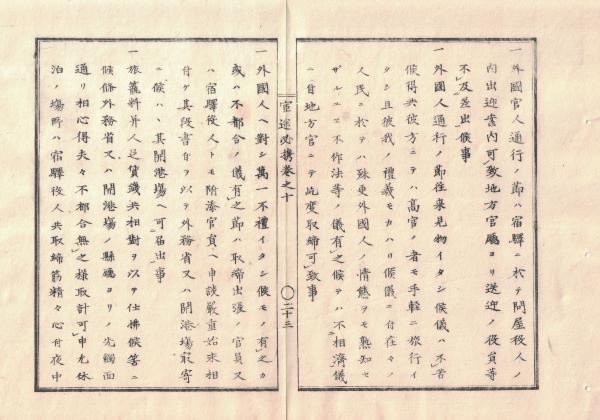 一外國官人通行ノ節ハ宿驛ニ於テ問屋役人ノ
内出迎案内可致地方官廳ヨリ送迎ノ役員等
不及差出候事
一外國人通行ノ節往来見物イタシ候儀ハ不苦
候得共彼方ニテハ高官ノ者モ手軽ニ旅行イ
タシ且彼我ノ禮義モカハリ候儀ニ付在々ノ
人民ニ於テハ殊更外國人ノ情態ヲモ熟知セ
ザルユエ不作法等ノ儀有之候テハ不相濟儀
ニ付地方官ニテ屹度取締可致事
宦途必携巻之十
〇二十三
一外國人ヘ對シ萬一不禮イタシ候モノ有之カ
或ハ不都合ノ儀有之節ハ取締出張ノ官員又
ハ宿驛役人トモ附添官員ヘ申談嚴重始末相
付ケ其段書付ヲ以テ外務省又ハ開港場最寄
ニ候ハヽ其開港場ヘ可届出事
一旅籠料并人足賃錢共相對ヲ以テ仕拂候筈ニ
候條外務省又ハ開港場ノ縣廳ヨリノ先觸面
通リ相心得夫々不都合無之様取計可申尤休
泊ノ場所ハ宿驛役人共取締筋精々心付夜中